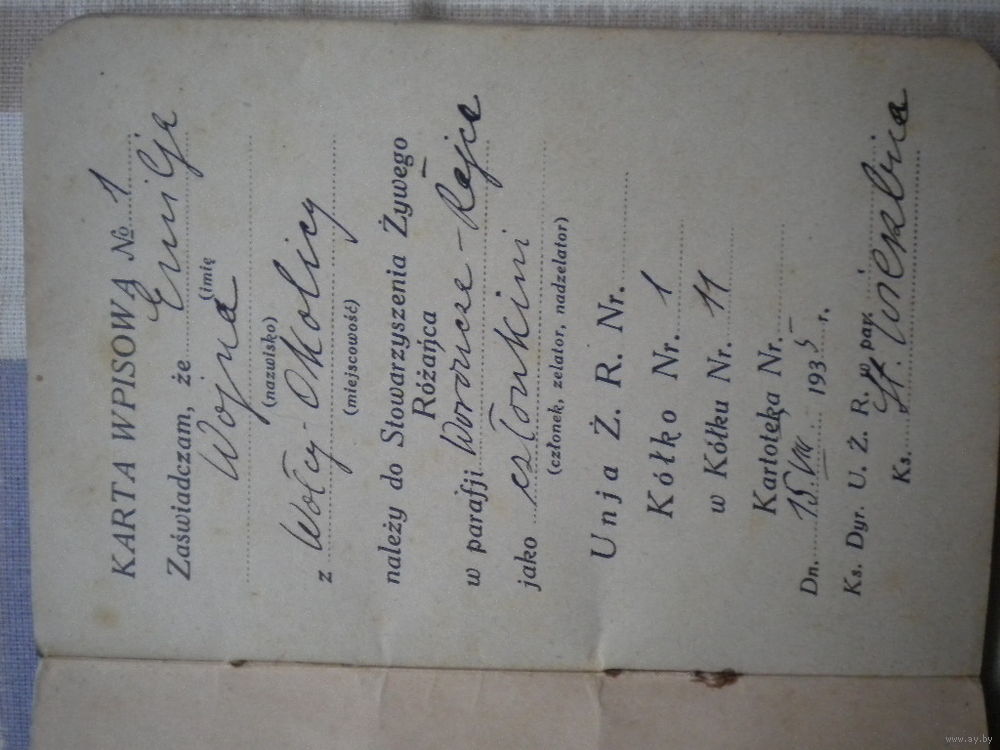 KARTA WPISOWA № 1
Zaświadczam, że Emilja
(imię
Wojna
(nazwisko)
z Wołcy-Okolicy
(miejscowość)
należy do Stowarzyszenia Żywego
Różańca
w parafji Worończe-
jako członkini
(członek, zelator, nadzelator)
Unja Ż. R. Nr.
Kółko Nr. 1
w Kółku Nr. 11
Kartoteka Nr.
Dn. 15 VIII 1935 r.
Ks. Dyr. U. Ż. R. w par.
Ks. St.
www.ay.by